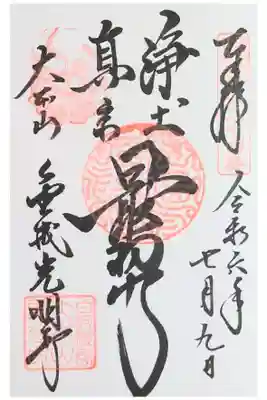 奉拝
令和六年
七月九日
浄土
真宗
最初門
大本山
金戒光明寺